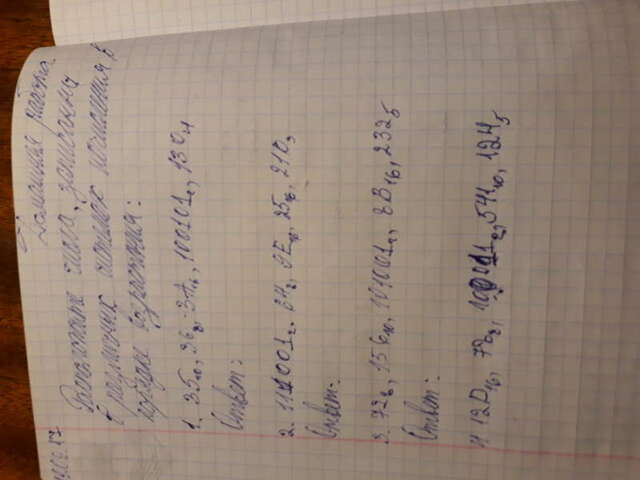 Домашняя работа.
Расположите числа, записанны
в различных системах исчисления в
порядке возрастания:
1. 35₁₀, 36₈, 3A₁₆, 100101₂, 130₄
Ответ:
2. 111001₂, 64₈, 9E₁₆, 25₁₆, 210₃
Ответ:
3. 72₈, 156₁₀, 101001₂, 8B₁₆, 232₅
Ответ:
4 12D₁₆, 78₈, 100011₂, 541₁₀, 124₅